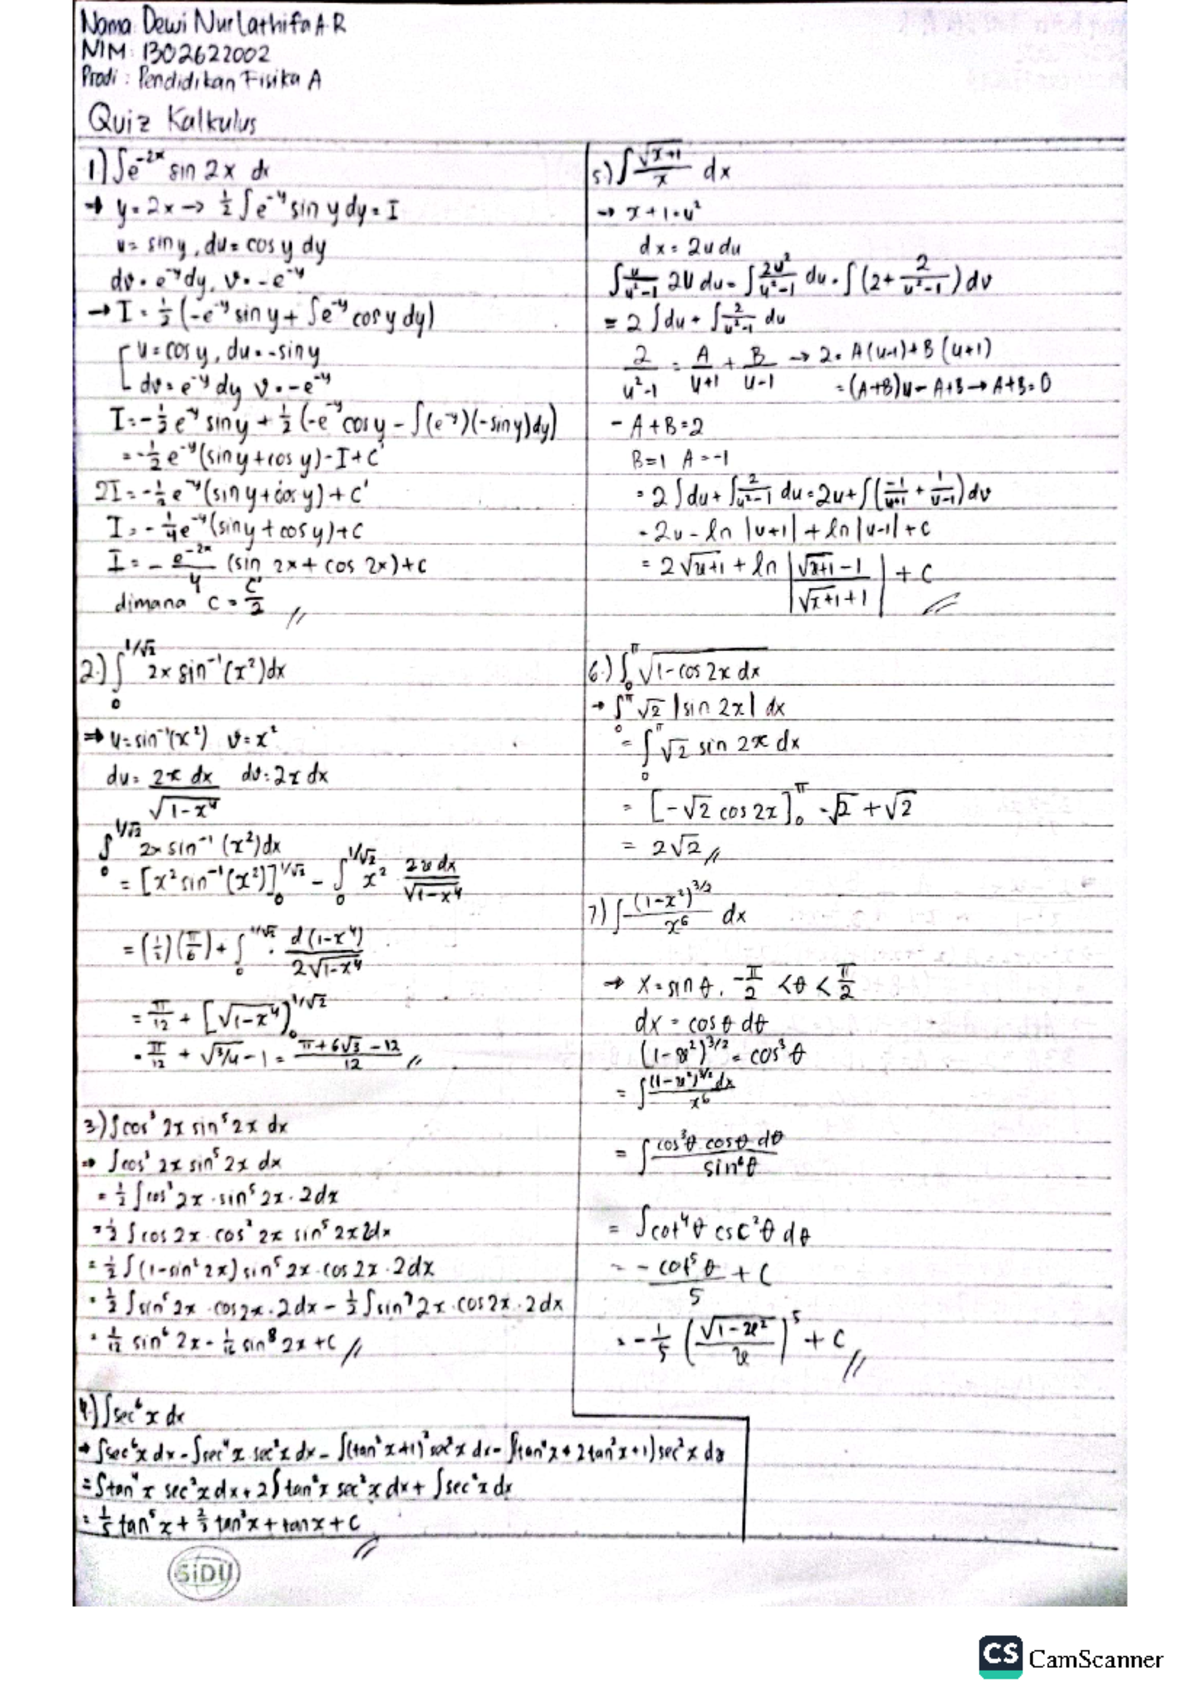 Nama: Dewi Nur Lathifa A.R
NIM: 1302622002
Prodi: Pendidikan Fisika A
Quiz Kalkulus
1) ∫e^{-2x} sin 2x dx
→ y = 2x → 1/2 ∫e^{-y} sin y dy = I
u = sin y, du = cos y dy
dv = e^{-y} dy, v = -e^{-y}
→ I = 1/2 (-e^{-y} sin y + ∫e^{-y} cos y dy)
u = cos y, du = -sin y
dv = e^{-y} dy v = -e^{-y}
I = -1/2 e^{-y} sin y + 1/2 (-e^{-y} cos y - ∫(e^{-y})(-sin y) dy)
= -1/2 e^{-y} (sin y + cos y) - I + C'
2I = -1/2 e^{-y} (sin y + cos y) + C'
I = -1/4 e^{-y} (sin y + cos y) + C
I = - e^{-2x}/4 (sin 2x + cos 2x) + C
dimana C = C'/2 //
2.) ∫_0^{1/√2} 2x sin^{-1} (x²) dx
⇒ u = sin^{-1} (x²) v = x²
du = 2x dx/√(1-x⁴) dv = 2x dx
∫_0^{1/√2} 2x sin^{-1} (x²) dx
= [x² sin^{-1} (x²)]_0^{1/√2} - ∫_0^{1/√2} x² · 2x dx/√(1-x⁴)
= (1/2) (π/6) + ∫_0^{1/√2} · d(1-x⁴)/2√(1-x⁴)
= π/12 + [√(1-x⁴)]_0^{1/√2}
= π/12 + √(3/4) - 1 = (π+6√3-12)/12 //
3.) ∫cos³ 2x sin⁵ 2x dx
⇒ ∫cos³ 2x sin⁵ 2x dx
= 1/2 ∫cos³ 2x · sin⁵ 2x · 2dx
= 1/2 ∫cos 2x · cos² 2x sin⁵ 2x 2dx
= 1/2 ∫(1-sin² 2x) sin⁵ 2x · cos 2x · 2dx
= 1/2 ∫sin⁵ 2x · cos 2x · 2dx - 1/2 ∫sin⁷ 2x · cos 2x · 2dx
= 1/12 sin⁶ 2x - 1/16 sin⁸ 2x + C //
4.) ∫sec⁶ x dx
→ ∫sec⁶ x dx = ∫sec⁴ x sec² x dx = ∫(tan² x+1)² sec² x dx = ∫(tan⁴ x + 2tan² x + 1) sec² x dx
= ∫tan⁴ x sec² x dx + 2∫tan² x sec² x dx + ∫sec² x dx
= 1/5 tan⁵ x + 2/3 tan³ x + tan x + C //
5.) ∫ √(x+1)/x dx
→ x + 1 = u²
dx = 2u du
∫ u/(u²-1) 2u du = ∫ 2u²/(u²-1) du = ∫(2 + 2/(u²-1)) du
= 2∫du + ∫ 2/(u²-1) du
2/(u²-1) = A/(u+1) + B/(u-1) → 2 = A(u-1) + B(u+1)
= (A+B)u - A+B → A+B = 0
- A + B = 2
B = 1 A = -1
= 2∫du + ∫ 2/(u²-1) du = 2u + ∫(-1/(u+1) + 1/(u-1)) du
= 2u - ln |u+1| + ln |u-1| + C
= 2√(x+1) + ln |(√(x+1) - 1)/(√(x+1) + 1)| + C //
6.) ∫_0^π √(1-cos 2x dx)
→ ∫_0^π √2 |sin 2x| dx
= ∫_0^π √2 sin 2x dx
= [-√2 cos 2x]_0^π = √2 + √2
= 2√2 //
7) ∫ (1-x²)^{3/2}/x⁶ dx
→ x = sin θ, -π/2 < θ < π/2
dx = cos θ dθ
(1-x²)^{3/2} = cos³ θ
= ∫ (1-x²)^{3/2} dx/x⁶
= ∫ cos³θ cos θ dθ/sin⁶θ
= ∫cot⁴ θ csc² θ dθ
= - cot⁵ θ/5 + C
= - 1/5 (√(1-x²)/x)⁵ + C //
SiDU
CS CamScanner